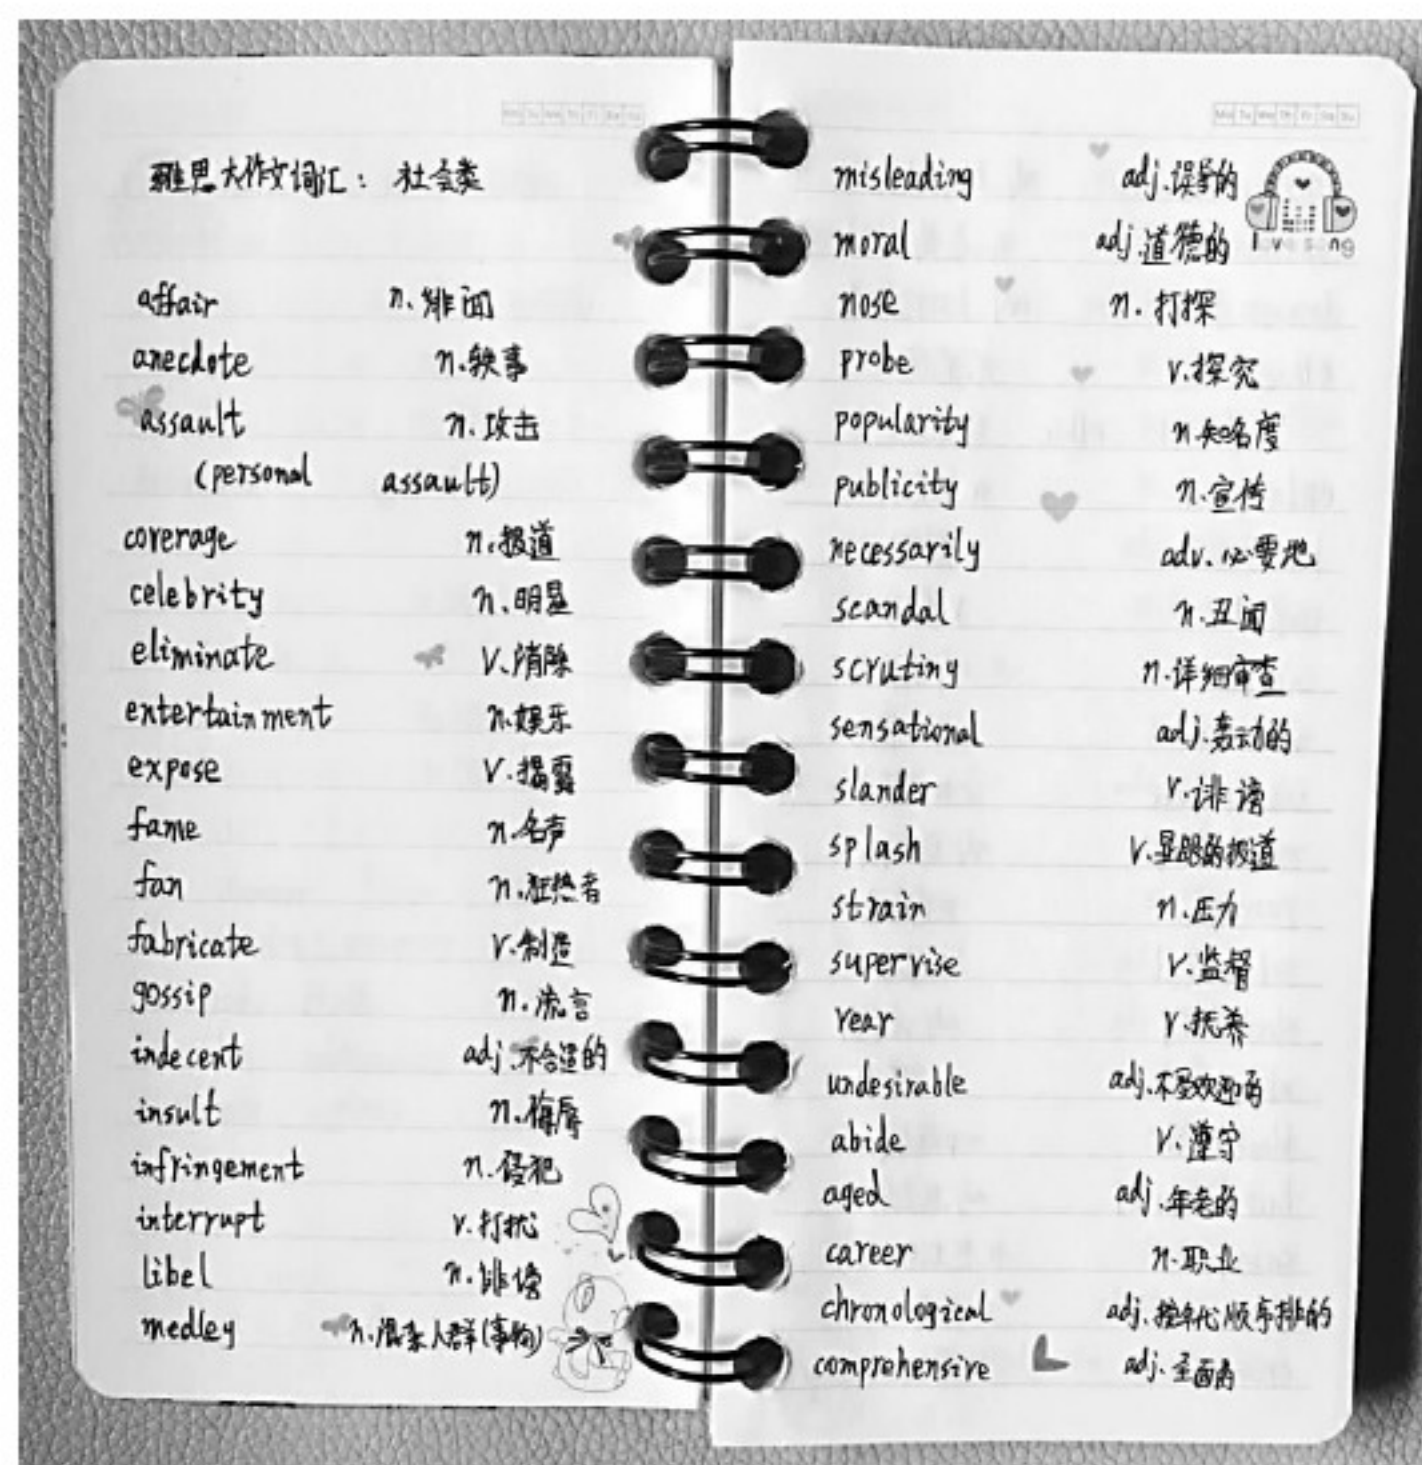 雅思大作文词汇：社会类
affair n.绯闻
anecdote n.轶事
assault n.攻击
(personal assault)
coverage n.报道
celebrity n.明星
eliminate v.消除
entertainment n.娱乐
expose v.揭露
fame n.名声
fan n.狂热者
fabricate v.制造
gossip n.流言
indecent adj.不合适的
insult n.侮辱
infringement n.侵犯
interrupt v.打扰
libel n.诽谤
medley n.混杂人群(事物)
misleading adj.误导的
moral adj.道德的
nose n.打探
probe v.探究
popularity n.知名度
publicity n.宣传
necessarily adv.必要地
scandal n.丑闻
scrutiny n.详细审查
sensational adj.轰动的
slander v.诽谤
splash v.显眼的报道
strain n.压力
supervise v.监督
rear v.抚养
undesirable adj.不受欢迎的
abide v.遵守
aged adj.年老的
career n.职业
chronological adj.按年代顺序排的
comprehensive adj.全面的